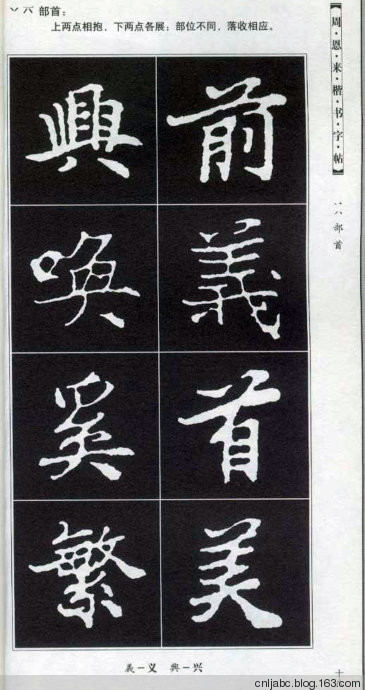 丷八 部首：
上两点相抱，下两点各展；部位不同，落收相应。
【周·恩·来·楷·书·字·帖】
丷八部首
前
義
首
美
興
喚
奚
繁
義－义 興－兴
十
cnljabc.blog.163.com